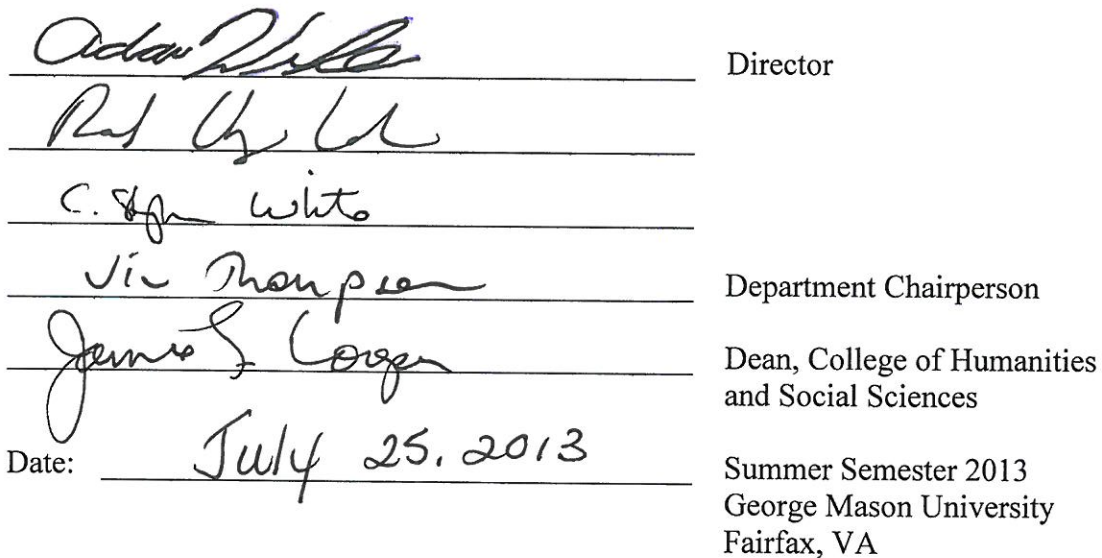 Adam Director
C. White
Jim Thompson Department Chairperson
Dean, College of Humanities
and Social Sciences
Date: July 25, 2013
Summer Semester 2013
George Mason University
Fairfax, VA